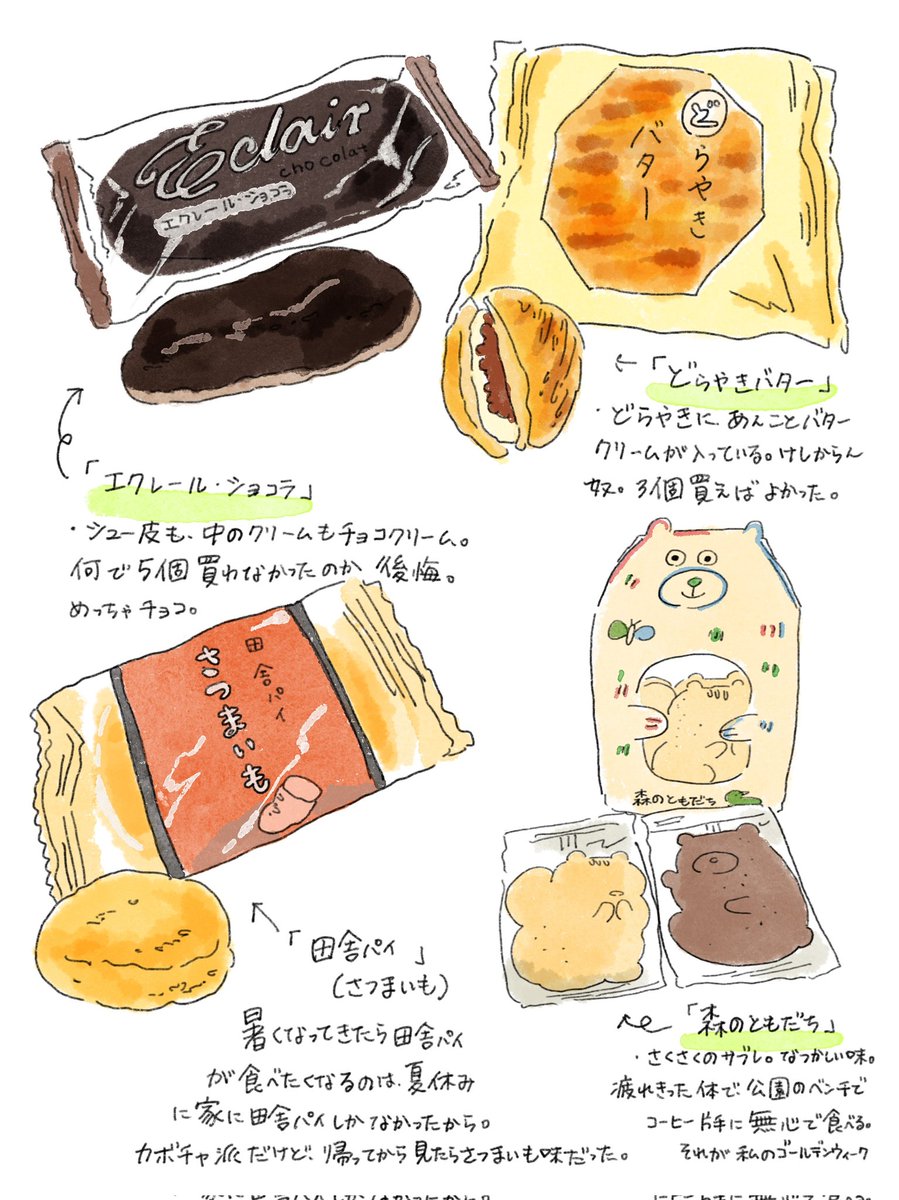 Eclair
chocolat
エクレール・ショコラ
どらやき
バター
「どらやきバター」
・どらやきに、あんことバター
クリームが入っている。けしからん
奴。3個買えばよかった。
「エクレール・ショコラ」
・シュー皮も、中のクリームもチョコクリーム。
何で5個買わなかったのか 後悔。
めっちゃチョコ。
田舎パイ
さつまいも
森のともだち
「田舎パイ」
(さつまいも)
暑くなってきたら田舎パイ
が食べたくなるのは、夏休み
に家に田舎パイしかなかったから。
カボチャ派だけど、帰ってから見たらさつまいも味だった。
「森のともだち」
・さくさくのサブレ。なつかしい味。
疲れきった体で、公園のベンチで
コーヒー片手に無心で食べる。
それが私のゴールデンウィーク